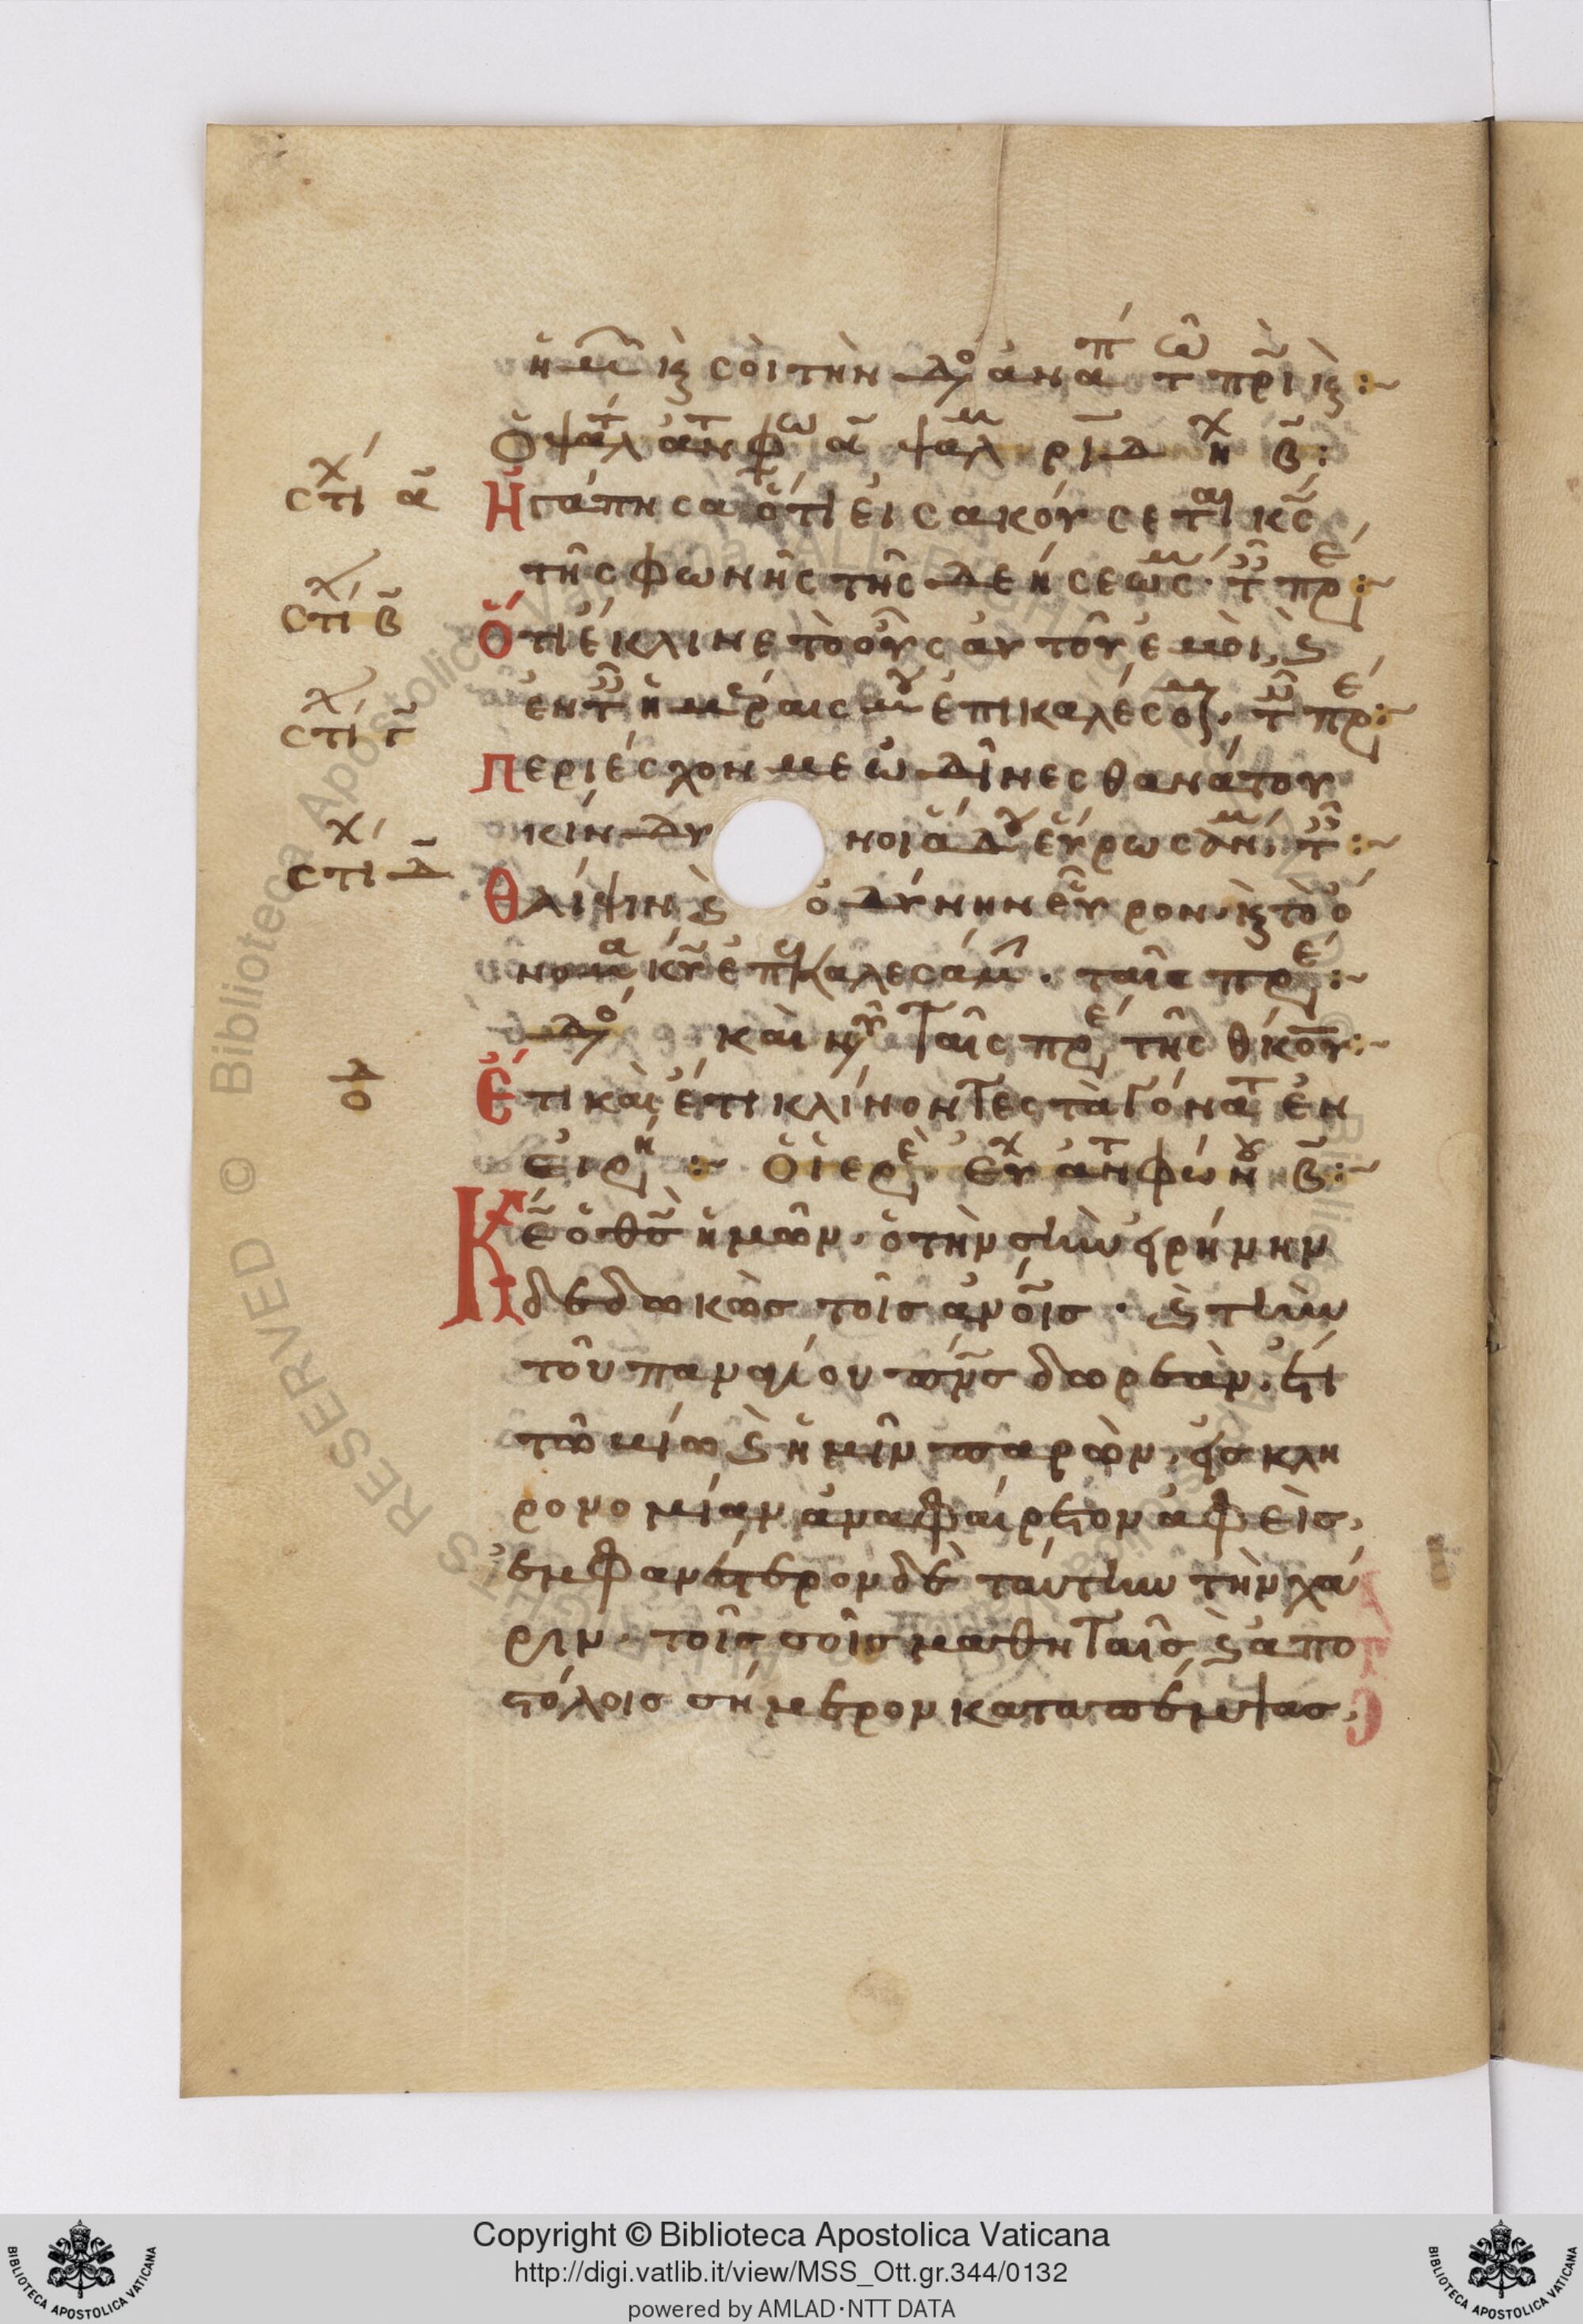 ἡμῶν κ(αὶ) σοὶ τὴν δο ἀναπ τ πρὶ κ(αὶ) :~
Ὁ ψαλτ ἀντφω α ψαλμ ριδ ηχ β :
στιχ α Ἠγάπησα ὅτι εἰσακούσεται κς
τῆς φωνῆς τῆς δεήσεώς μ· τ πρε :~
στιχ β Ὅτι ἔκλινε τὸ οὖς αὐτοῦ ἐμοὶ, κ(αὶ)
ἐν τ ἡμέραις μου ἐπικαλέσομ· τ πρε :~
στιχ γ Περιέσχον με ὠδῖνες θανάτου
κίνδυνοι ἅδου εὕρωσάν μ· τ :~
στιχ δ Θλίψιν κ(αὶ) ὀδύνην εὗρον· κ(αὶ) τὸ ὄ
νομα κυ ἐπικαλεσάμ· ταῖς πρε :~
δο καὶ νῦ Ταῖς πρε τῆς θκου :~
δο Ἔτι καὶ ἔτι κλίνοντες τὰ γόνατ ἐν
εἰρη :~ ὁ ἱερε εὐχ ἀντφών β :~
Κε ὁ θς ἡμῶν· ὁ τὴν σὴν εἰρήνην
δεδωκὼς τοῖς ἀνοις· κ(αὶ) τὴν
τοῦ παναγίου πνς δωρεὰν, ἔτι
τῶ βίω κ(αὶ) ἡμῖν παρὼν, εἰς κλη
ρονομίαν ἀναφαίρετον ἀφεὶς,
ἐμφανέστερον δὲ ταύτην τὴν χά
ριν· τοῖς σοῖς μαθηταῖς κ(αὶ) ἀπο
στόλοις σήμερον καταπέμψας,
Copyright © Biblioteca Apostolica Vaticana
http://digi.vatlib.it/view/MSS_Ott.gr.344/0132
powered by AMLAD·NTT DATA
BIBLIOTECA APOSTOLICA VATICANA
BIBLIOTECA APOSTOLICA VATICANA